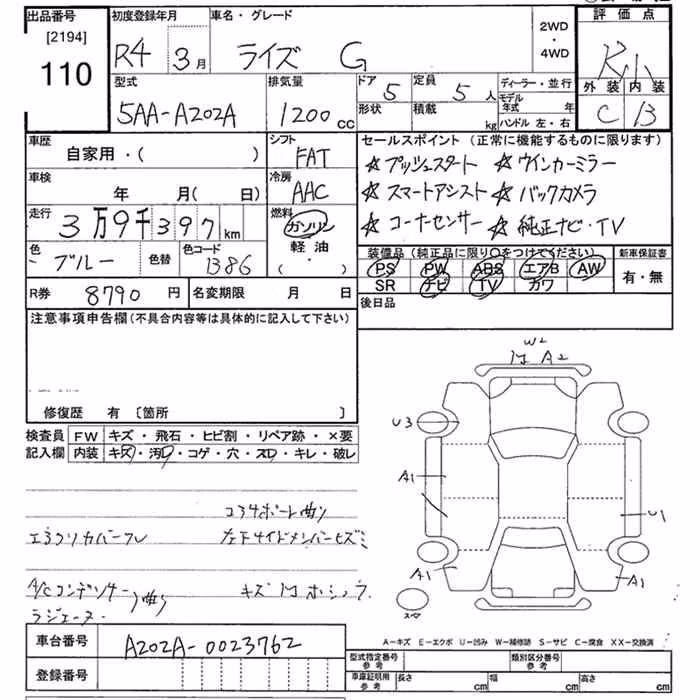 出品番号
[2194]
110
初度登録年月
R4 3月
車名・グレード
ライズ G
2WD
・
4WD
評価点
外装 内装
C B
型式
5AA-A202A
排気量
1200 cc
ドア 5
定員 5人
形状
積載 kg
ディーラー・並行
モデル年式 年
ハンドル 左・右
車歴
自家用・( )
シフト
FAT
車検
年 月( 日)
冷房
AAC
走行
3万9千397km
燃料
ガソリン
軽油
( ・ )
色
ブルー
色替
色コード
B86
セールスポイント(正常に機能するものに限ります)
☆プッシュスタート ☆ウインカーミラー
☆スマートアシスト ☆バックカメラ
☆コーナーセンサー ☆純正ナビ・TV
装備品(純正品に限り○をつけてください)
PS PW ABS エアB AW
SR ナビ TV カワ
新車保証書
有・無
R券 8790円
名変期限 月 日
後日品
注意事項申告欄(不具合内容等は具体的に記入して下さい)
修復歴 有 〔箇所 〕
検査員
記入欄
FW キズ・飛石・ヒビ割・リペア跡・×要
内装 キズ・汚レ・コゲ・穴・スレ・キレ・破レ
コアサポート曲り
エプロンカバーワレ
左下サイドメンバーキズミ
A/Cコンデンサー
曲り
ラジエーター
W2
A2
U3
A1
U1
A1
A1
A-キズ E-エクボ U-凹み W-補修跡 S-サビ C-腐食 XX-交換済
車台番号
A202A-0023762
登録番号
型式指定番号
参考
類別区分番号
参考
車庫証明用
参考
長さ cm
幅 cm
高さ cm